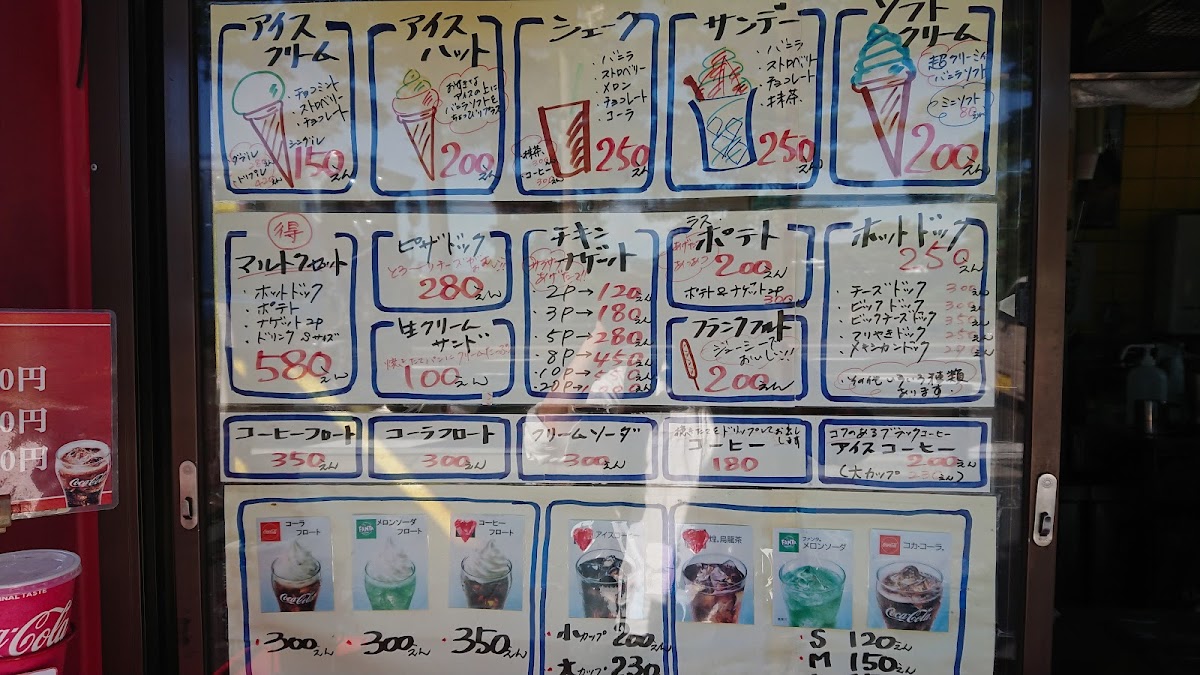 アイス
クリーム
・チョコミント
・ストロベリー
・チョコレート
シングル
150えん
ダブル
トリプル
アイス
ハット
お好きな
アイスの上に
バニラソフトを
ちょっぴりプラス
200えん
シェーク
・バニラ
・ストロベリー
・メロン
・チョコレート
・コーラ
250えん
・抹茶
・コーヒー
サンデー
・バニラ
・ストロベリー
・チョコレート
・抹茶
250えん
ソフト
クリーム
超クリーミィ
バニラソフト
ミニソフト
200えん
得
マルトフロット
・ホットドック
・ポテト
・ナゲット2P
・ドリンクSサイズ
580えん
ピザドック
280えん
生クリーム
サンド
100えん
チキン
ナゲット
あげたて!!
・2P→120えん
・3P→180えん
・5P→280えん
・8P→450えん
・10P→
・20P→
ポテト
200えん
ポテト&ナゲット2P
300えん
フランクフルト
ジューシーで
おいしい!!
200えん
ホットドック
250えん
・チーズドック 300えん
・ビックドック 300えん
・ビックチーズドック 350えん
・テリやきドック
・メキシカンドック
その他いろいろ種類
あります。
コーヒーフロート
350えん
コーラフロート
300えん
クリームソーダ
300えん
コーヒー
180
コクのあるブラックコーヒー
アイスコーヒー
200えん
(大カップ 230えん)
コーラ
フロート
・300えん
メロンソーダ
フロート
・300えん
コーヒー
フロート
・350えん
アイスコーヒー
・小カップ 200えん
・大カップ 230
烏龍茶
ファンタ
メロンソーダ
コカ・コーラ
・S 120えん
・M 150えん
0円
0円
0円
Coca-Cola
ORIGINAL TASTE
Coca-Cola